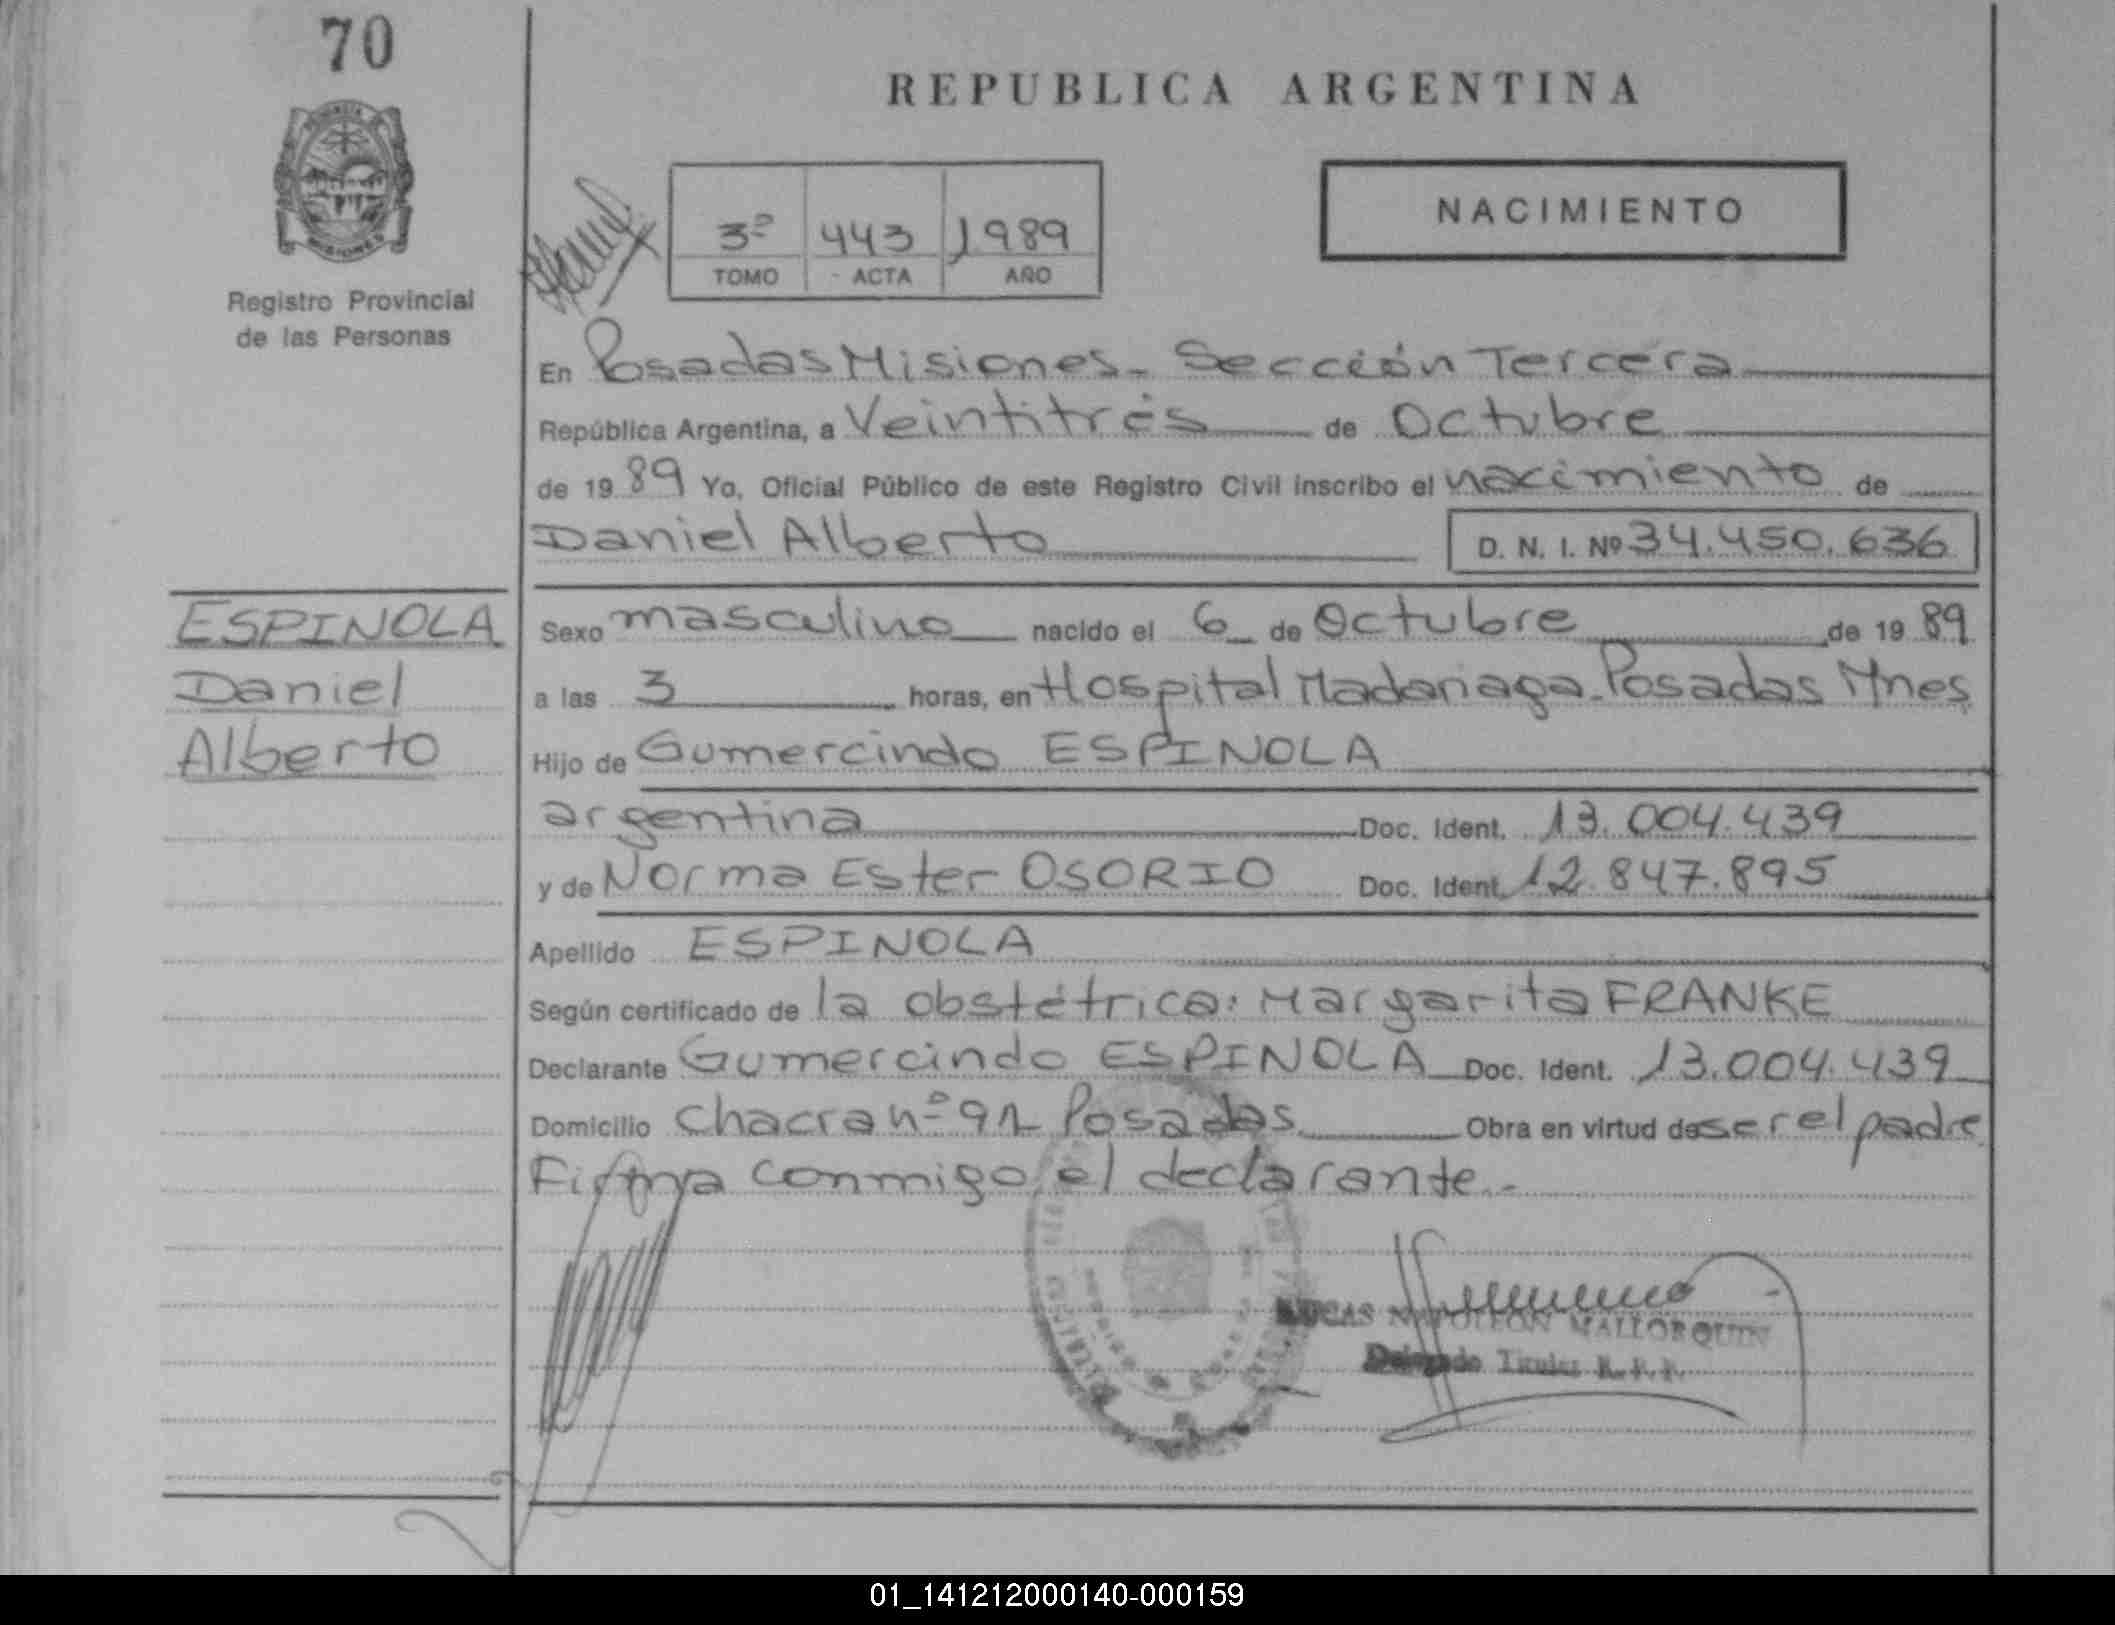 70
REPUBLICA ARGENTINA
NACIMIENTO
3º 443 1989
TOMO ACTA AÑO
MISIONES
Registro Provincial
de las Personas
En Posadas Misiones - Sección Tercera
República Argentina, a Veintitrés de Octubre
de 19 89 Yo, Oficial Público de este Registro Civil inscribo el nacimiento de
Daniel Alberto D. N. I. Nº 34.450.636
ESPINOLA
Daniel
Alberto
Sexo masculino nacido el 6 de Octubre de 19 89
a las 3 horas, en Hospital Madariaga - Posadas Mnes
Hijo de Gumercindo ESPINOLA
argentina Doc. Ident. 13.004.439
y de Norma Ester OSORIO Doc. Ident. 12.847.895
Apellido ESPINOLA
Según certificado de la obstétrica: Margarita FRANKE
Declarante Gumercindo ESPINOLA Doc. Ident. 13.004.439
Domicilio Chacra nº 92 Posadas Obra en virtud de ser el padre
Firma conmigo el declarante.-
LUCAS NAPOLEON MALLORQUIN
Delegado Titular R. P. P.
01_141212000140-000159